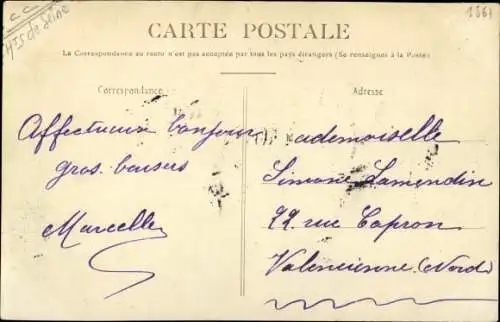 Hts de Seine
1561
CARTE POSTALE
La Correspondance au recto n'est pas acceptée par tous les pays étrangers (Se renseigner à la Poste)
Correspondance
Adresse
Affectueux bonjour
gros baisers
Marcelle
Mademoiselle
Simone Lamendin
22 rue Capron
Valencienne (Nord)